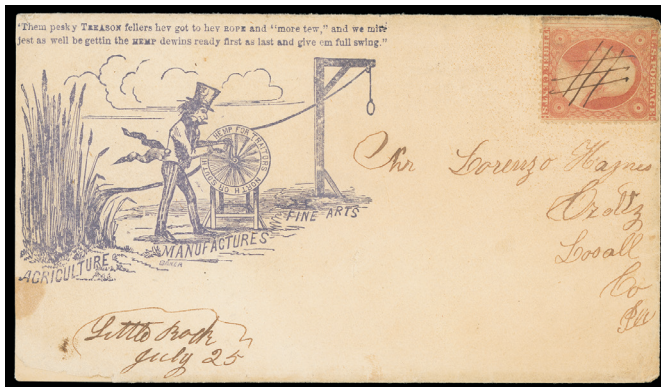 "Them pesky TREASON fellers hev got to hev ROPE and "more tew," and we mite
jest as well be gettin the HEMP dewins ready first as last and give em full swing."
HEMP FOR TRAITORS
NORTH OR SOUTH
FINE ARTS
MANUFACTURES
AGRICULTURE
Lorenzo Haynes
Losall
Co
Ill
Little Rock
July 25